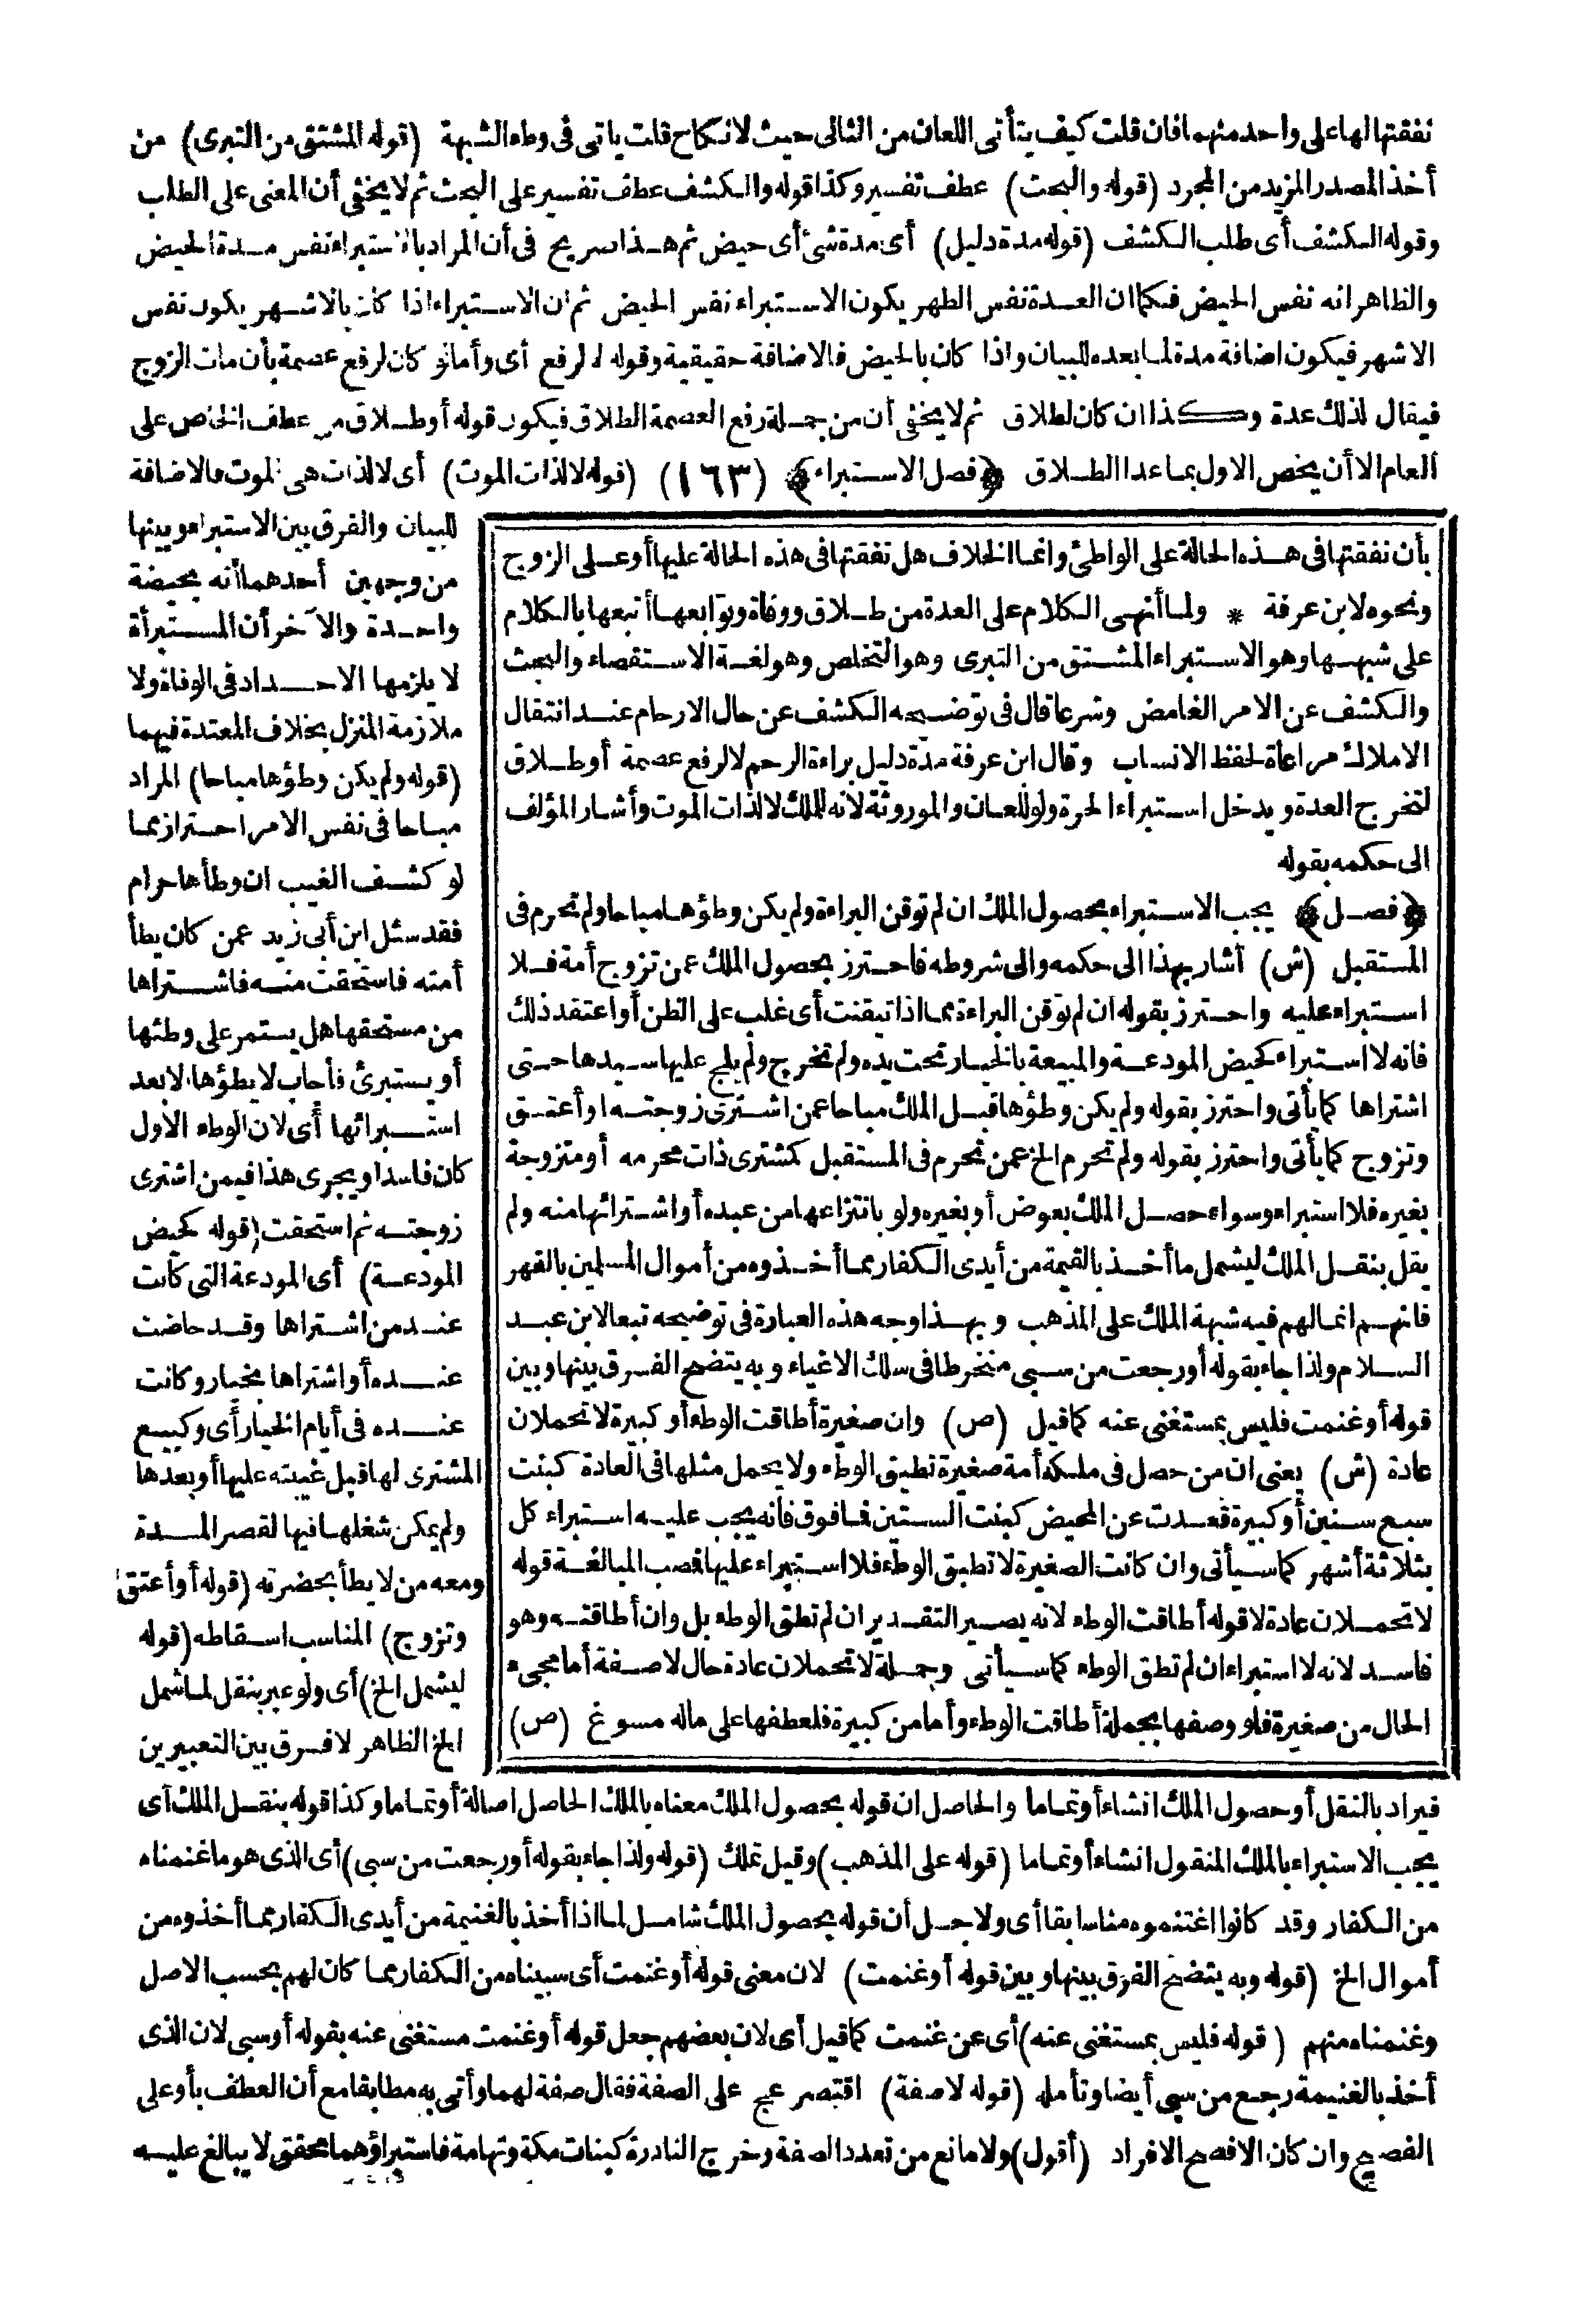 نفقتها لها على واحد منهما فان قلت كيف يتأتى اللعان من الثانى حيث لا نكاح قلت ياتى فى وطء الشبهة (قوله المشتق من التبرى) من
أخذ المصدر المزيد من المجرد (قوله والبحث) عطف تفسير وكذا قوله والكشف عطف تفسير على البحث ثم لا يخفى أن المعنى على الطلب
وقوله الكشف أى طلب الكشف (قوله مدة دليل) أى مدة شئ أى حيض ثم هذا صريح فى أن المراد بالاستبراء نفس مدة الحيض
والظاهر انه نفس الحيض فكما ان العدة نفس الطهر يكون الاستبراء نفس الحيض ثم ان الاستبراء اذا كان بالاشهر يكون نفس
الاشهر فيكون اضافة مدة لما بعده للبيان واذا كان بالحيض فالاضافة حقيقية وقوله لا لرفع أى وأما لو كان لرفع عصمة بأن مات الزوج
فيقال لذلك عدة وكذا ان كان لطلاق ثم لا يخفى أن من جملة رفع العصمة الطلاق فيكون قوله أو طلاق من عطف الخاص على
العام الا أن يخص الاول بما عدا الطلاق ﴿فصل الاستبراء﴾ (١٦٣) (قوله لا لذات الموت) أى لا لذات هى الموت فالاضافة
بأن نفقتها فى هذه الحالة على الواطئ وانما الخلاف هل نفقتها فى هذه الحالة عليها أو على الزوج
ونحوه لابن عرفة * ولما أنهى الكلام على العدة من طلاق ووفاة وتوابعها أتبعها بالكلام
على شبهها وهو الاستبراء المشتق من التبرى وهو التخلص وهو لغة الاستقصاء والبحث
والكشف عن الامر الغامض وشرعا قال فى توضيحه الكشف عن حال الارحام عند انتقال
الاملاك مراعاة لحفظ الانساب وقال ابن عرفة مدة دليل براءة الرحم لا لرفع عصمة أو طلاق
لتخرج العدة ويدخل استبراء الحرة ولو للعان والموروثة لانه للملك لا لذات الموت وأشار المؤلف
الى حكمه بقوله
﴿فصل﴾ يجب الاستبراء بحصول الملك ان لم توقن البراءة ولم يكن وطؤها مباحا ولم تحرم فى
المستقبل (ش) أشار بهذا الى حكمه والى شروطه فاحترز بحصول الملك عمن تزوج أمة فلا
استبراء عليه واحترز بقوله ان لم توقن البراءة مما اذا تيقنت أى غلب على الظن أو اعتقد ذلك
فانه لا استبراء كحيض المودعة والمبيعة بالخيار تحت يده ولم تخرج ولم يلج عليها سيدها حتى
اشتراها كما يأتى واحترز بقوله ولم يكن وطؤها قبل الملك مباحا عمن اشترى زوجته او أعتق
وتزوج كما يأتى واحترز بقوله ولم تحرم الخ عمن تحرم فى المستقبل كمشترى ذات محرمه أو متزوجة
بغيره فلا استبراء وسواء حصل الملك بعوض أو بغيره ولو بانتزاعها من عبده أو اشترائها منه ولم
يقل بنقل الملك ليشمل ما أخذ بالقيمة من أيدى الكفار مما أخذوه من أموال المسلمين بالقهر
فانهم انما لهم فيه شبهة الملك على المذهب وبهذا وجه هذه العبارة فى توضيحه تبعا لابن عبد
السلام ولذا جاء بقوله أو رجعت من سبى منخرطا فى سلك الاغياء وبه يتضح الفرق بينها وبين
قوله أو غنمت فليس بمستغنى عنه كما قيل (ص) وان صغيرة أطاقت الوطء أو كبيرة لا تحملان
عادة (ش) يعنى ان من حصل فى ملكه أمة صغيرة تطيق الوطء ولا يحمل مثلها فى العادة كبنت
سبع سنين أو كبيرة قعدت عن المحيض كبنت الستين فما فوق فانه يجب عليه استبراء كل
بثلاثة أشهر كما سيأتى وان كانت الصغيرة لا تطيق الوطء فلا استبراء عليها فصب المبالغة قوله
لا تحملان عادة لا قوله أطاقت الوطء لانه يصير التقدير ان لم تطق الوطء بل وان أطاقته وهو
فاسد لانه لا استبراء ان لم تطق الوطء كما سيأتى وجملة لا تحملان عادة حال لا صفة أما مجىء
الحال من صغيرة فلو وصفها بجملة أطاقت الوطء وأما من كبيرة فلعطفها على ماله مسوغ (ص)
للبيان والفرق بين الاستبراء وبينها
من وجهين أحدهما أنه بحيضة
واحدة والآخر أن المستبرأة
لا يلزمها الاحداد فى الوفاة ولا
ملازمة المنزل بخلاف المعتدة فيهما
(قوله ولم يكن وطؤها مباحا) المراد
مباحا فى نفس الامر احترازا مما
لو كشف الغيب ان وطأها حرام
فقد سئل ابن أبى زيد عمن كان يطأ
أمته فاستحقت منه فاشتراها
من مستحقها هل يستمر على وطئها
أو يستبرئ فأجاب لا يطؤها الا بعد
استبرائها أى لان الوطء الاول
كان فاسدا ويجرى هذا فيمن اشترى
زوجته ثم استحقت (قوله كحيض
المودعة) أى المودعة التى كانت
عند من اشتراها وقد حاضت
عنده أو اشتراها بخيار وكانت
عنده فى أيام الخيار أى وكبيع
المشترى لها قبل غيبته عليها أو بعدها
ولم يمكن شغلها فيها لقصر المدة
ومعه من لا يطأ بحضرته (قوله أو أعتق
وتزوج) المناسب اسقاطه (قوله
ليشمل الخ) أى ولو عبر بنقل لما شمل
الخ الظاهر لا فرق بين التعبيرين
فيراد بالنقل أو حصول الملك انشاء أو تماما والحاصل ان قوله بحصول الملك معناه بالملك الحاصل اصالة أو تماما وكذا قوله بنقل الملك أى
يجب الاستبراء بالملك المنقول انشاء أو تماما (قوله على المذهب) وقيل تملك (قوله ولذا جاء بقوله أو رجعت من سبى) أى الذى هو ما غنمناه
من الكفار وقد كانوا اغتنموه منا سابقا أى ولاجل أن قوله بحصول الملك شامل لما اذا أخذ بالغنيمة من أيدى الكفار مما أخذوه من
أموال الخ (قوله وبه يتضح الفرق بينها وبين قوله أو غنمت) لان معنى قوله أو غنمت أى سبيناه من الكفار مما كان لهم بحسب الاصل
وغنمناه منهم (قوله فليس بمستغنى عنه) أى عن غنمت كما قيل أى لان بعضهم جعل قوله أو غنمت مستغنى عنه بقوله أو سبى لان الذى
أخذ بالغنيمة رجع من سبى أيضا وتأمله (قوله لا صفة) اقتصر عج على الصفة فقال صفة لهما وأتى به مطابقا مع أن العطف بأو على
الفصيح وان كان الافصح الافراد (أقول) ولا مانع من تعدد الصفة وخرج النادرة كبنات مكة وتهامة فاستبراؤهما محقق لا يبالغ عليه